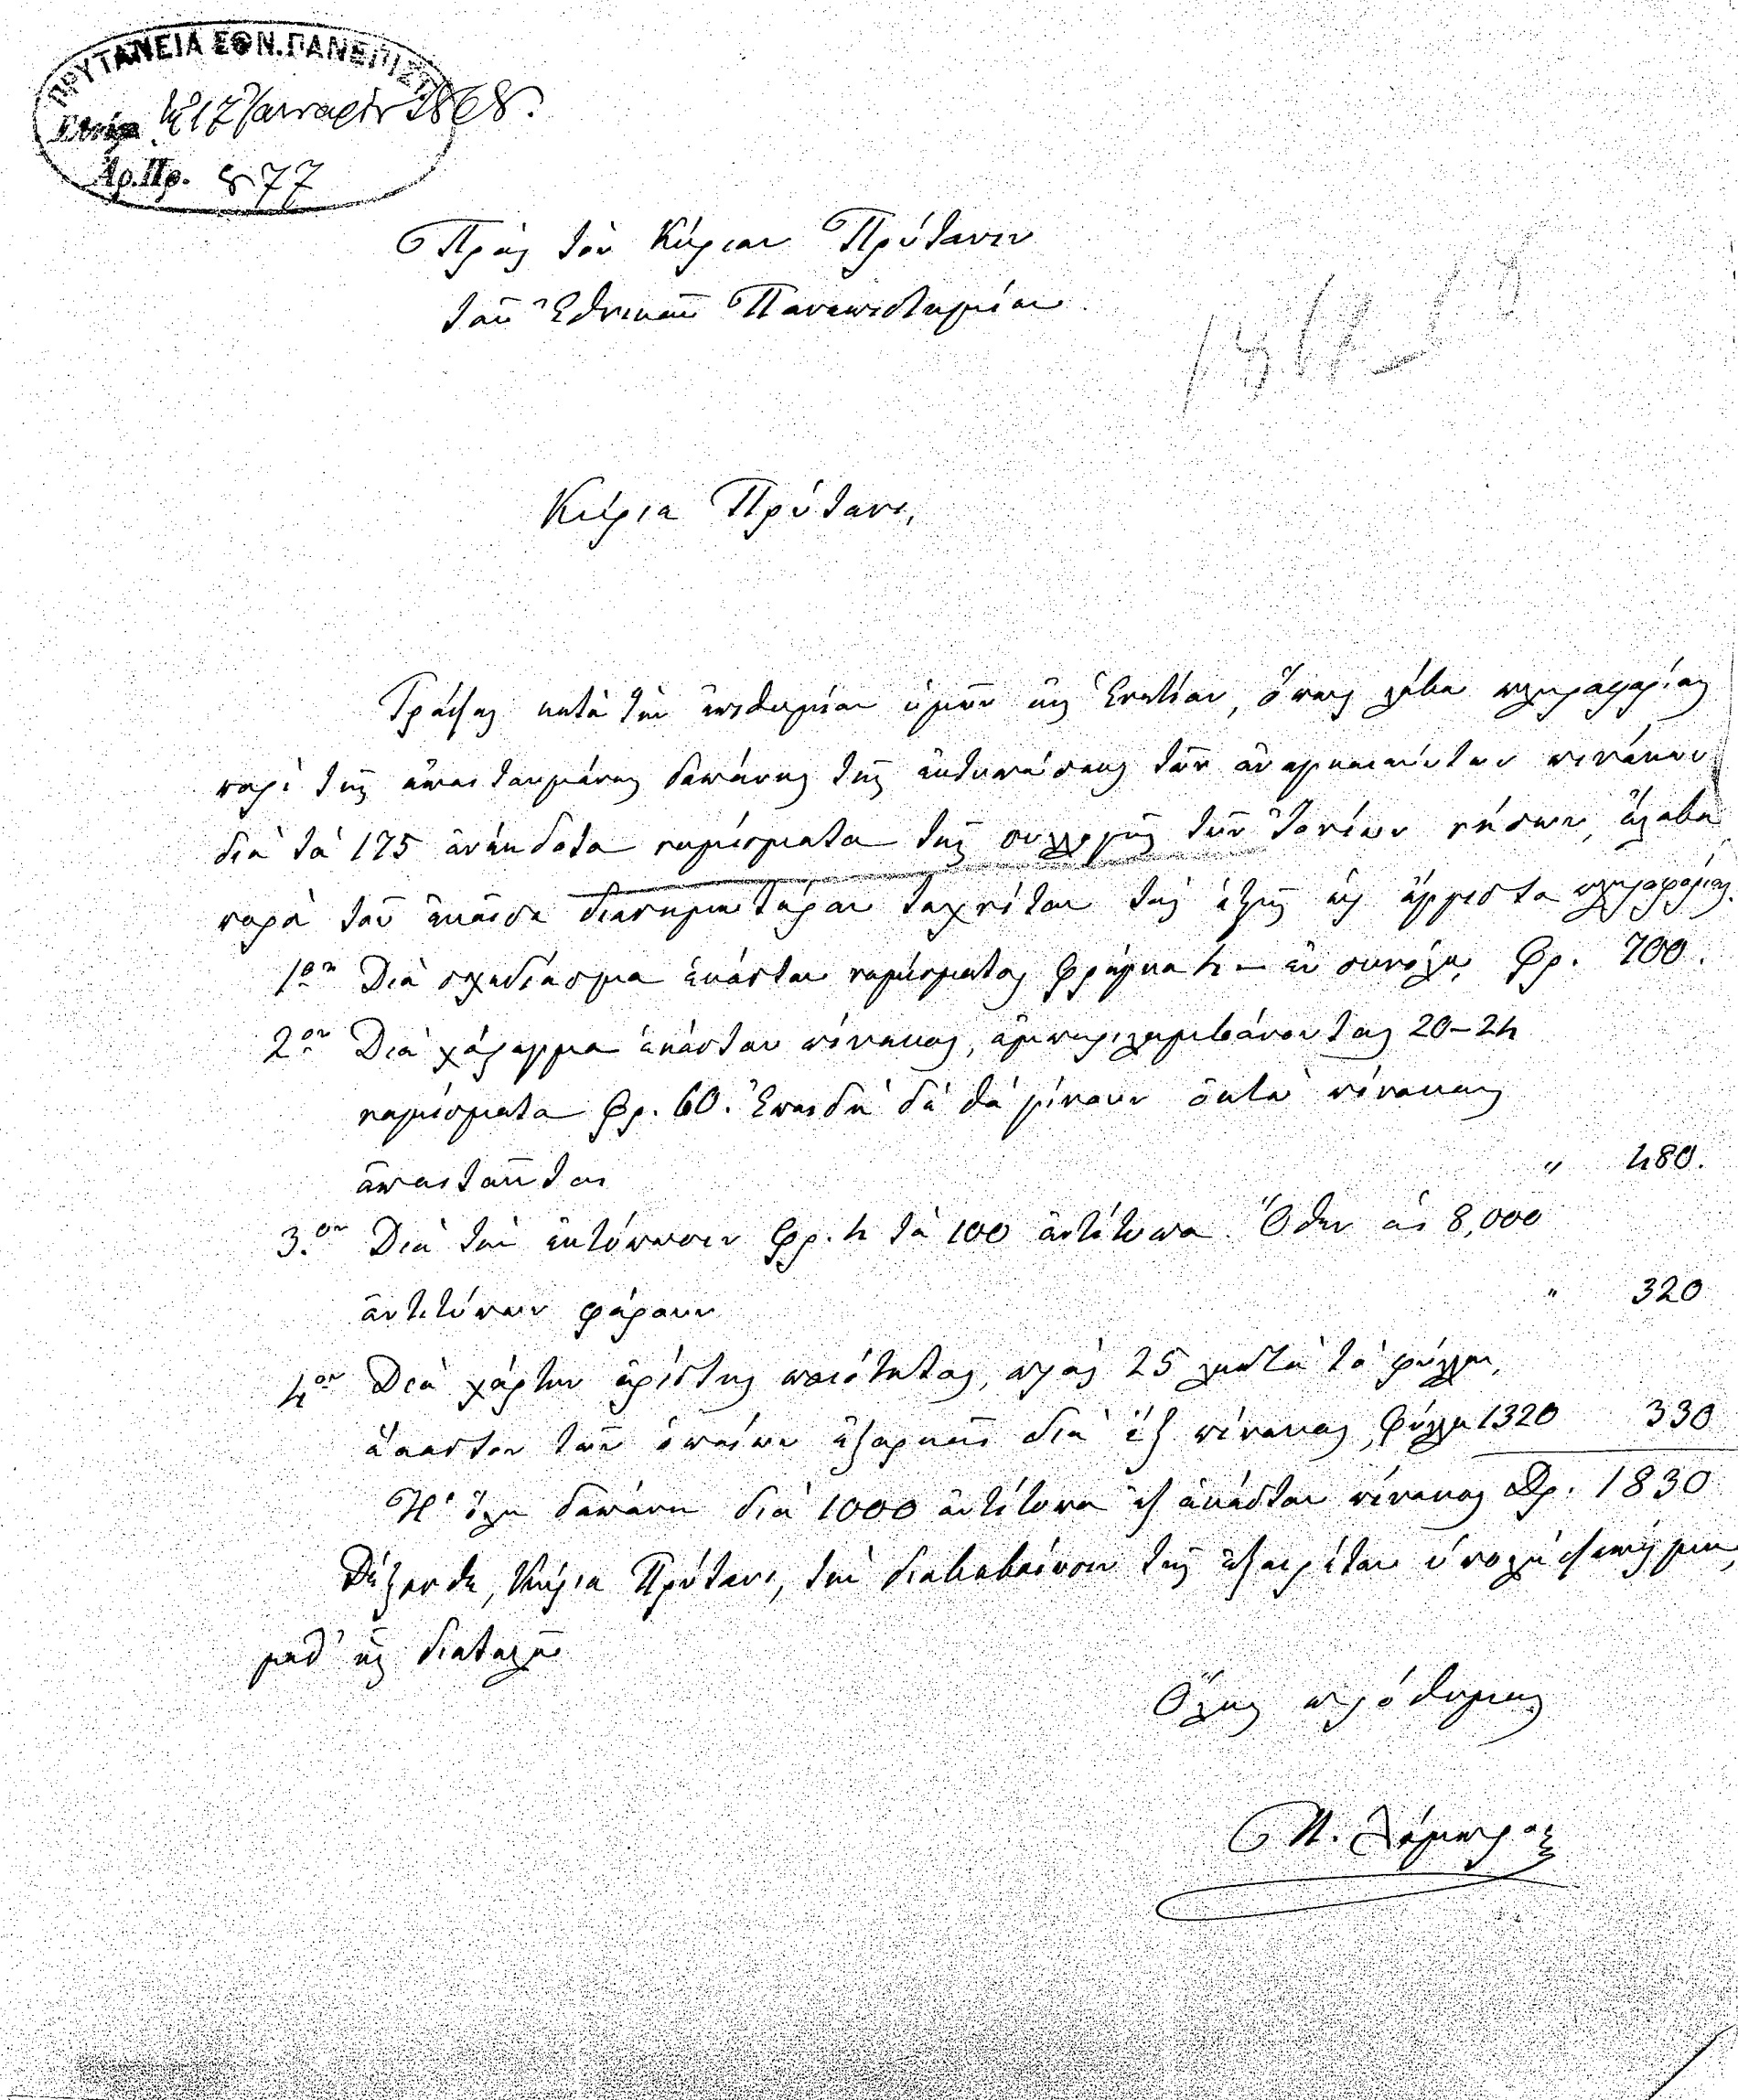 ΠΡΥΤΑΝΕΙΑ ΕΘΝ. ΠΑΝΕΠΙΣΤ.
τῇ 17 Ἰανουαρίου 1868.
Ἀρ. Πρ. 877
Πρὸς τὸν Κύριον Πρύτανιν
τοῦ Ἐθνικοῦ Πανεπιστημίου
Κύριε Πρύτανι,
Γράψας κατὰ τὴν ἐπιθυμίαν ὑμῶν εἰς Ἑνετίαν, ὅπως λάβω πληροφορίας
περὶ τῆς ἀπαιτουμένης δαπάνης τῆς ἐκτυπώσεως τῶν ἀναγκαιούντων πινάκων
διὰ τὰ 175 ἀνέκδοτα νομίσματα τῆς συλλογῆς τῶν Ἰονίων νήσων, ἔλαβον
παρὰ τοῦ ἐκεῖσε διασημοτέρου τεχνίτου τὰς ἑξῆς ὡς ἔγγιστα πληροφορίας.
1ον Διὰ σχεδίασμα ἑκάστου νομίσματος φράγκα 4 — ἐν συνόλῳ Φρ. 700.
2ον Διὰ χάραγμα ἑκάστου πίνακος, ἐμπεριλαμβάνοντος 20–24
νομίσματα Φρ. 60. Ἐπειδὴ δὲ θὰ γίνουν ὀκτὼ πίνακες
ἀπαιτοῦνται " 480.
3.ον Διὰ τὴν ἐκτύπωσιν Φρ. 4 τὰ 100 ἀντίτυπα. Ὅθεν αἱ 8,000
ἀντιτύπων φέρουν " 320
4ον Διὰ χάρτην ἀρίστης ποιότητος, πρὸς 25 λεπτὰ τὸ φύλλον,
ἕκαστον τῶν ὁποίων ἐξαρκεῖ διὰ ἓξ πίνακας, φύλλα 1320 330
Ἡ ὅλη δαπάνη διὰ 1000 ἀντίτυπα ἐξ ἑκάστου πίνακος Φρ. 1830
Δέξασθε, Κύριε Πρύτανι, τὴν διαβεβαίωσιν τῆς ἐξαιρέτου ὑπολήψεώς μου,
μεθ' ἧς διατελῶ
Ὅλως πρόθυμος
Π. Λάμπρος